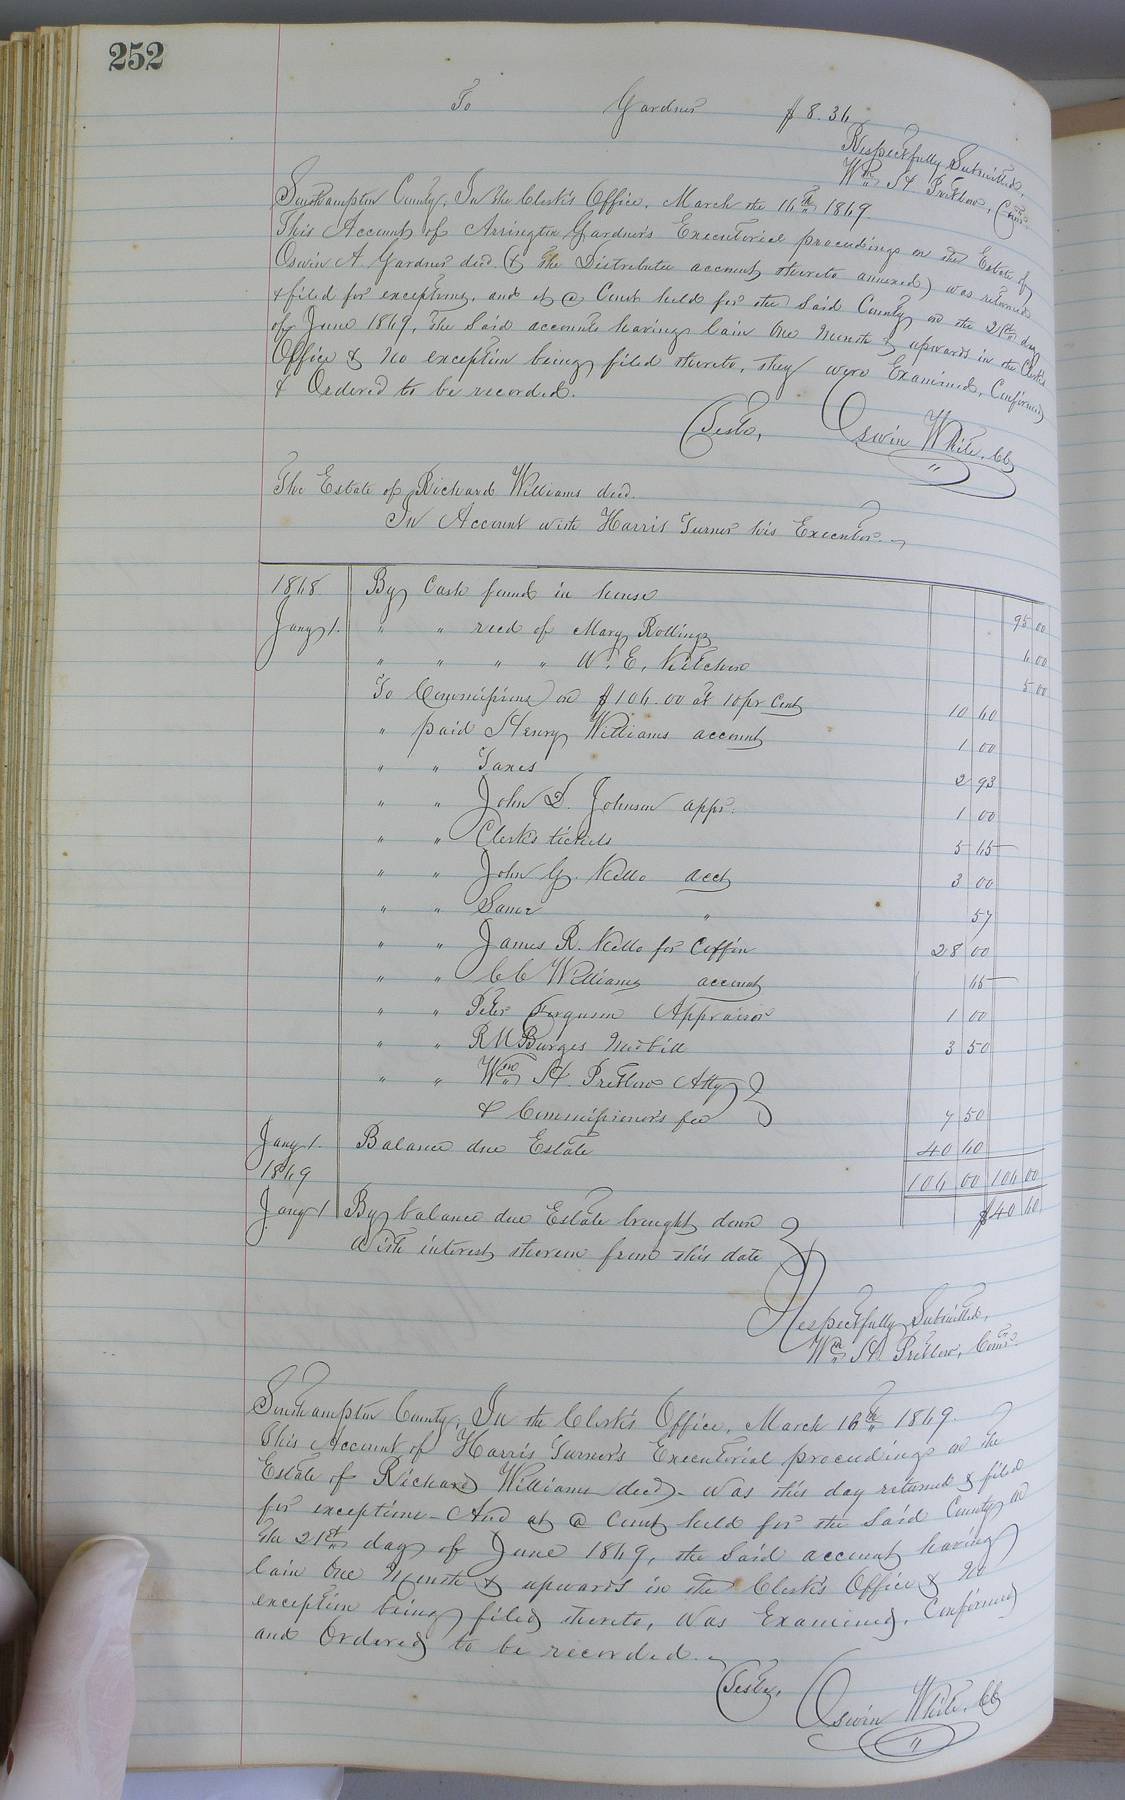 252
To Gardner $8.36
Respectfully Submitted,
Wm H Pretlow, Comr.
Southampton County, In the Clerk's Office, March the 16th 1869.
This Account of Arrington Gardner's Executorial proceedings on the Estate of
Oswin A Gardner decd. (& the Distributee account thereto annexed) was returned
& filed for exceptions, and at a Court held for the Said County on the 21st day
of June 1869, the Said accounts having lain One Month & upwards in the Clerk's
Office & No exception being filed thereto, they were Examined, Confirmed
& Ordered to be recorded.
Teste, Oswin White. CC
The Estate of Richard Williams decd.
In Account with Harris Turner his Executor.
1868 By Cash found in house 95 00
Jany 1. " " recd of Mary Rollings 6 00
" " " " W. E. Kitchen 5 00
To Commissions on $106.00 at 10 pr Cent 10 60
" paid Henry Williams account 1 00
" " Taxes 2 93
" " John D. Johnson appr. 1 00
" " Clerk's tickets 5 65
" " John G. Kello acct 3 00
" " Same " 57
" " James R. Kello for Coffin 28 00
" " CC Williams account 65
" " Peter Ferguson Appraiser 1 00
" " R M Burges Med bill 3 50
" " Wm H. Pretlow Atty
& Commissioner's fee 7 50
Jany 1. Balance due Estate 40 60
1869 106 00 106 00
Jany 1 By balance due Estate brought down $40 60
With interest thereon from this date
Respectfully Submitted,
Wm H Pretlow, Comr.
Southampton County, In the Clerk's Office, March 16th 1869.
This Account of Harris Turner's Executorial proceedings on the
Estate of Richard Williams decd - was this day returned & filed
for exceptions - And at a Court held for the Said County on
the 21st day of June 1869, the Said account having
lain One Month & upwards in the Clerk's Office & No
exception being filed thereto, was Examined, Confirmed
and Ordered to be recorded.
Teste, Oswin White. CC